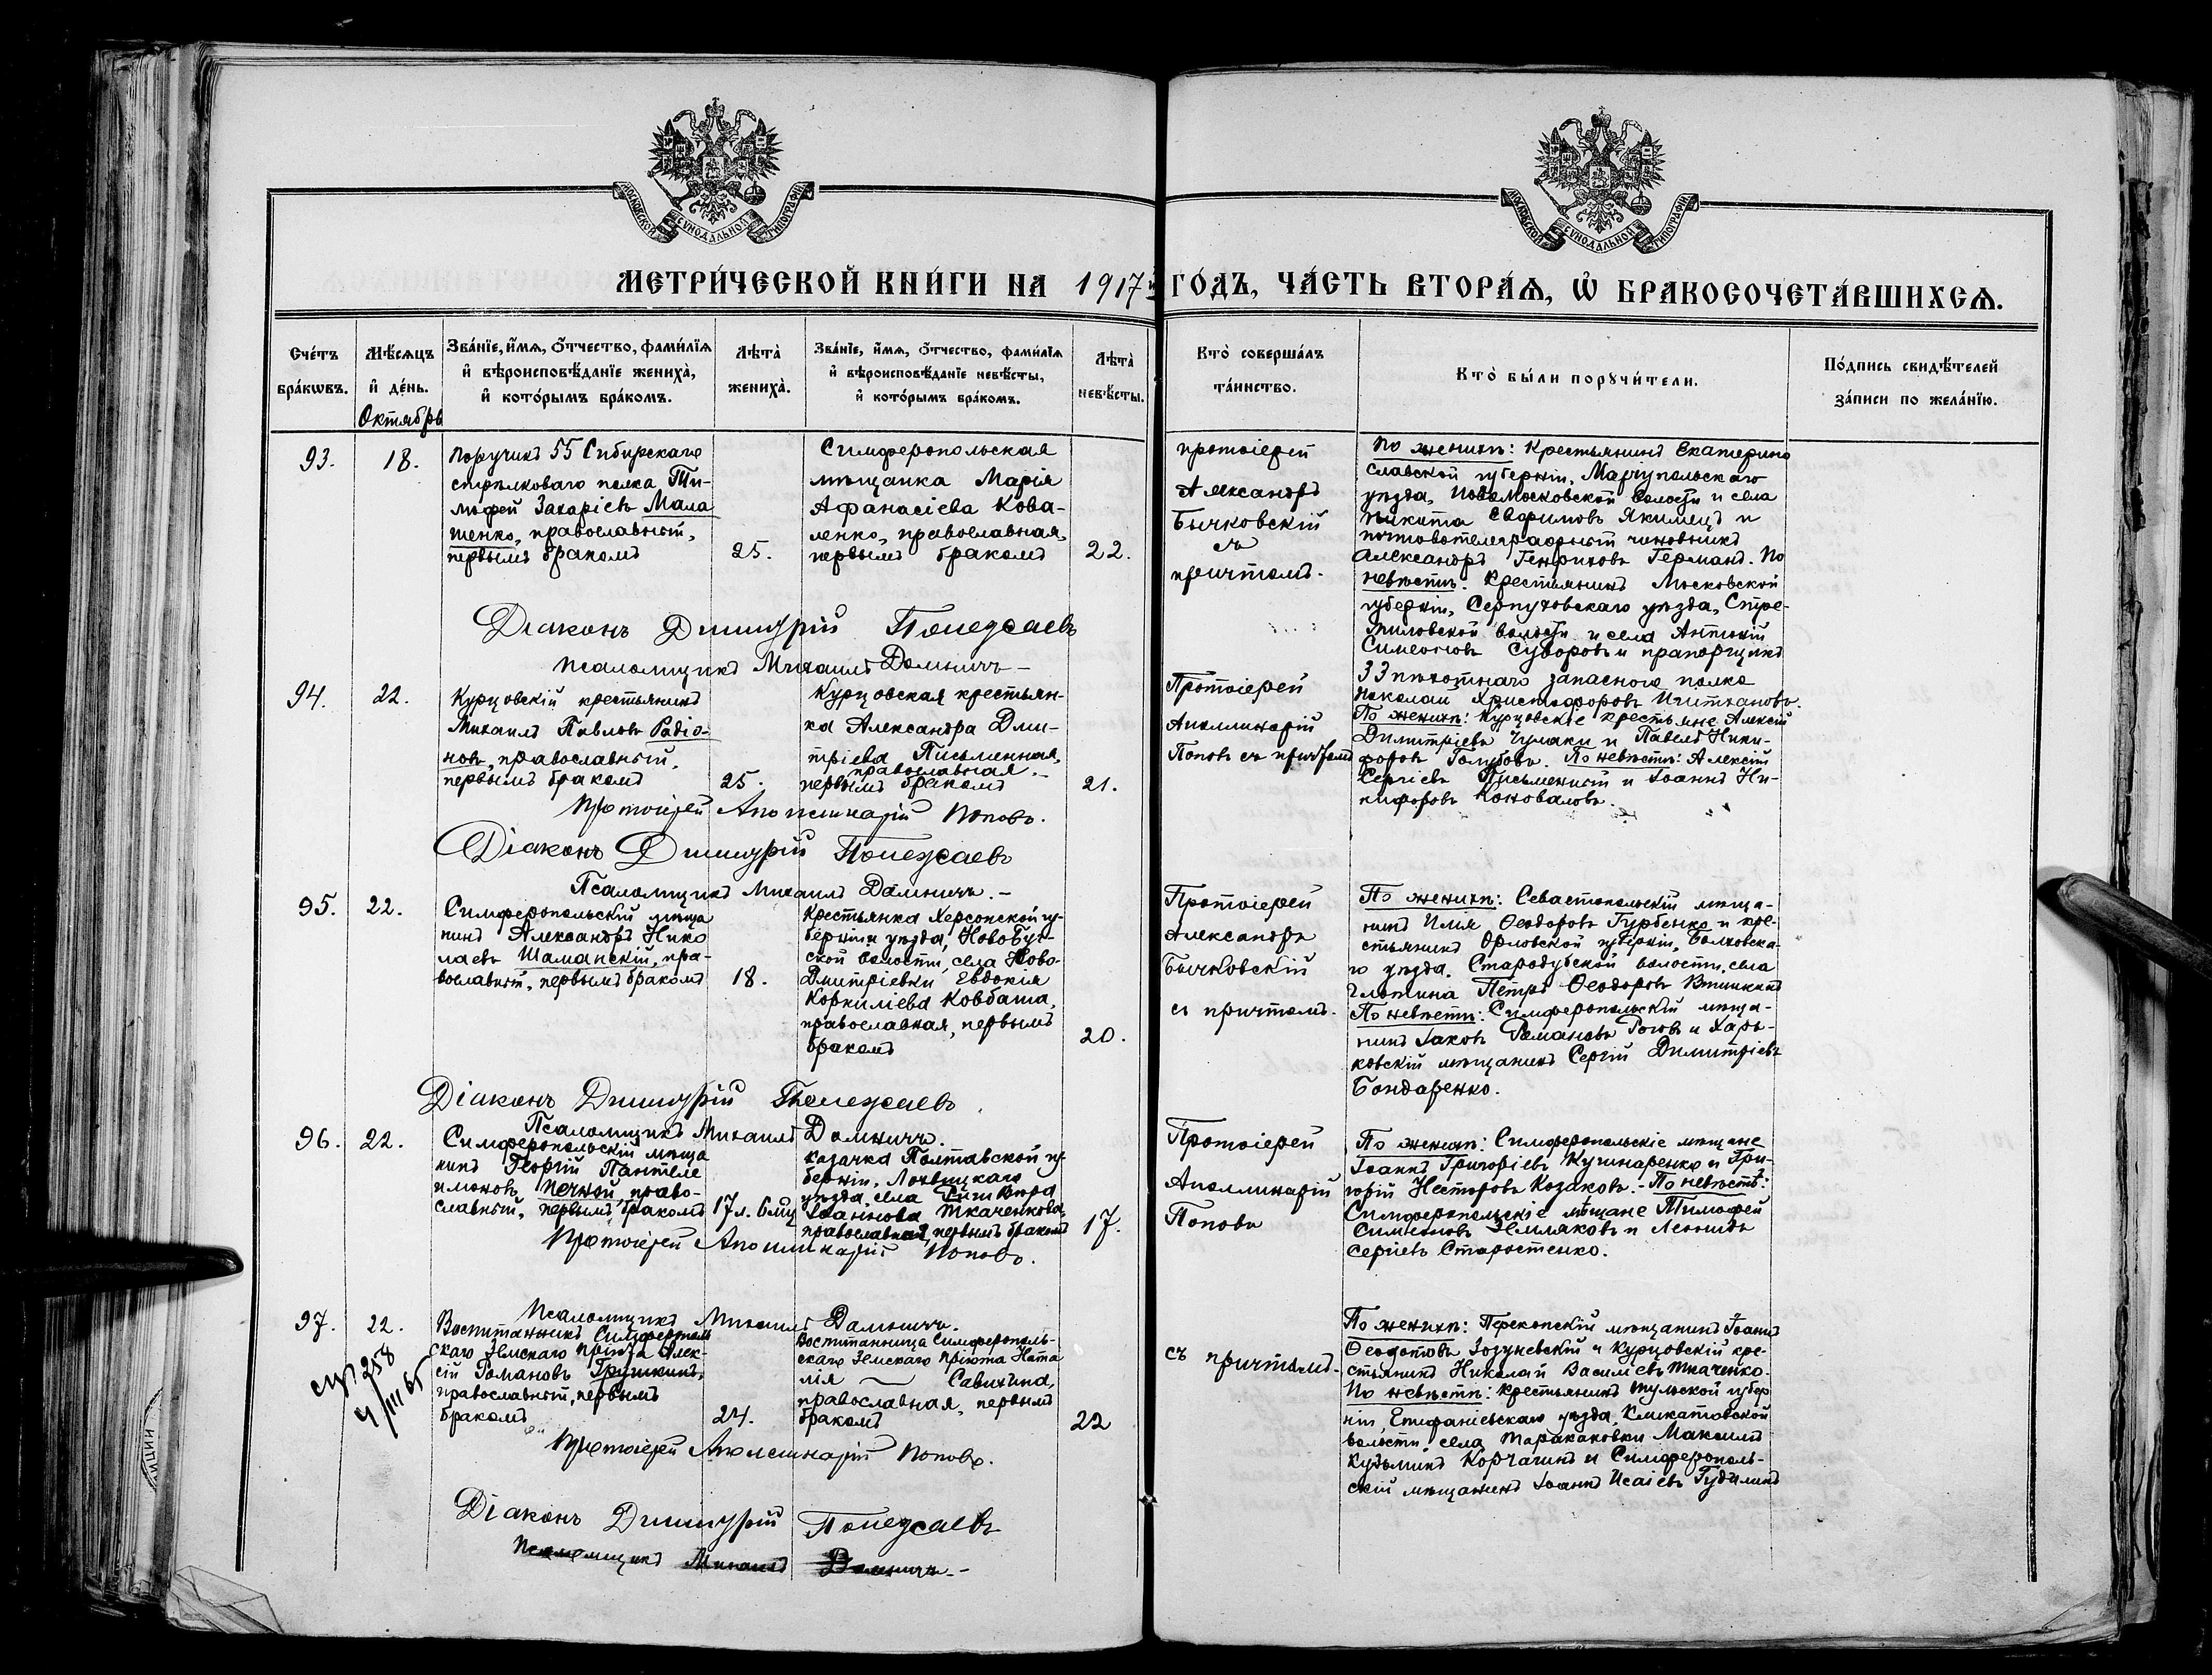 МОСКОВСКОЙ СѴНОДАЛЬНОЙ ТИПОГРАФІИ
МОСКОВСКОЙ СѴНОДАЛЬНОЙ ТИПОГРАФІИ
МЕТРИ́ЧЕСКОЙ КНИ́ГИ НА 1917й ГО́ДЪ, ЧА́СТЬ ВТОРА́Я, Ѡ҆ БРАКОСОЧЕТА́ВШИХСЯ.
Сче́тъ бра́кѡвъ.
Мѣ́сяцъ и҆ де́нь.
Октябрь
Зва́нїе, и҆́мя, о҆́тчество, фами́лїя и҆ вѣроисповѣ́данїе жениха̀, и҆ кото́рымъ бра́комъ.
Лѣ́та жениха̀.
Зва́нїе, и҆́мя, о҆́тчество, фами́лїя и҆ вѣроисповѣ́данїе невѣ́сты, и҆ кото́рымъ бра́комъ.
Лѣ́та невѣ́сты.
Кто̀ соверша́лъ та́инство.
Кто̀ бы́ли порꙋчи́тели.
По́дпись свидѣ́телей за́писи по жела́нїю.
93.
18.
Поручикъ 55 Сибирскаго
стрѣлковаго полка Ти-
мофей Захаріевъ Мала
тенко, православный,
первымъ бракомъ
25.
Симферопольская
мѣщанка Марія
Афанасіева Кова-
ленко, православная,
первымъ бракомъ
22.
протоіерей
Александръ
Бычковскій
съ
причтомъ.
По женихѣ: Крестьянинъ Екатерино
славской губерніи, Маріупольскаго
уѣзда, Новомосковской волости и села
Никита Евфимовъ Якимецъ и
почтовотелеграфный чиновникъ
Александръ Генриховъ Германъ. По
невѣстѣ: Крестьянинъ Московской
губерніи, Серпуховскаго уѣзда, Стре-
миловской волости и села Антоній
Симеоновъ Суворовъ и прапорщикъ
33 пѣхотнаго запаснаго полка
Николай Христофоровъ
Діаконъ Димитрій
Псаломщикъ Михаилъ Домничъ -
94.
22.
Курцовскій крестьянинъ
Михаилъ Павловъ Радіо-
новъ, православный,
первымъ бракомъ
25.
Курцовская крестьян-
ка Александра Дми-
тріева Письменная,
православная.
первымъ бракомъ
21.
Протоіерей
Аполлинарій
Поповъ съ причтомъ
По женихѣ: Курцовскіе крестьяне Алексій
Димитріевъ Чумаки и Павелъ Ники-
форовъ Голубовъ. По невѣстѣ: Алексій
Сергіевъ Письменный и Іоаннъ Ни-
кифоровъ Коновалов.
Протоіерей Аполлинарій Поповъ.
Діаконъ Димитрій
Псаломщикъ Михаилъ Домничъ. -
95.
22.
Симферопольскій мѣща
нинъ Александръ Нико
лаевъ Шаманскій, пра-
вославный, первымъ бракомъ
18.
Крестьянка Херсонской гу-
берніи и уѣзда, НовоБуг-
ской волости, села Ново-
Дмитріевки Евдокія
Корниліева Ковбаша,
православная, первымъ
бракомъ
20.
Протоіерей
Александръ
Бычковскій
съ причтомъ.
По женихѣ: Севастопольскій мѣща-
нинъ Илія Ѳеодоровъ Гурбенко и кре-
стьянинъ Орловской губерніи, Болховска-
го уѣзда, Стародубской волости, села
Петръ Ѳеодоровъ
По невѣстѣ: Симферопольскій мѣща-
нинъ Іаковъ Романовъ Роговъ и Харь-
ковскій мѣщанинъ Сергій Димитріевъ
Бондаренко.
Діаконъ Димитрій
Псаломщикъ Михаилъ Домничъ.
96.
22.
Симферопольскій мѣща
нинъ Георгій Пантеле
имоновъ Печной, право-
славный, первымъ бракомъ
17 л. 6 мц
казачка Полтавской гу-
берніи, Лохвицкаго
уѣзда, села
Іоаннова Ткаченкова,
православная, первымъ бракомъ
17.
Протоіерей
Аполлинарій
Поповъ
По женихѣ: Симферопольскіе мѣщане
Іоаннъ Григоріевъ Кушнаренко и Гри-
горій Несторовъ Козаковъ. - По невѣстѣ:
Симферопольскіе мѣщане Тимофей
Симеоновъ Земляковъ и Леонидъ
Сергіевъ Старостенко.
Протоіерей Аполлинарій Поповъ.
Псаломщикъ Михаилъ Домничъ.
97.
22.
Воспитанникъ Симферополь
скаго Земскаго пріюта Алек-
сій Романовъ Грушкинъ,
православный, первымъ
бракомъ
24.
Воспитанница Симферополь-
скаго Земскаго пріюта Ната
лія — Савихина,
православная, первымъ
бракомъ
22
съ причтомъ.
По женихѣ: Перекопскій мѣщанинъ Іоаннъ
Ѳеодотовъ Зозулевскій и Курцовскій кре-
стьянинъ Николай Васильевъ Ткаченко.
По невѣстѣ: крестьянинъ Тульской губер
ніи, Епифаніевскаго уѣзда,
волости, села Таракановки Максимъ
Кузьминъ Корчагинъ и Симферополь-
скій мѣщанинъ Іоаннъ Исаіевъ Гудилинъ
258
4/III 65
Протоіерей Аполлинарій Поповъ.
Діаконъ Димитрій
Псаломщикъ Михаилъ Домничъ. -